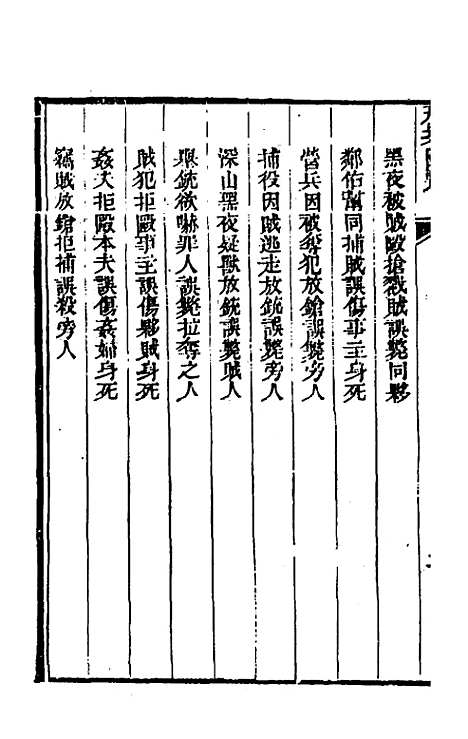 黑夜被賊毆搶戳賊誤斃同夥
鄰佑幫同捕賊誤傷事主身死
營兵因被姦犯放鎗誤斃旁人
捕役因賊逃走放銃誤斃旁人
深山黑夜疑獸放銃誤斃賊人
舉銃欲嚇罪人誤斃拉奪之人
賊犯拒毆事主誤傷夥賊身死
姦夫拒毆本夫誤傷姦婦身死
竊賊放鎗拒捕誤殺旁人